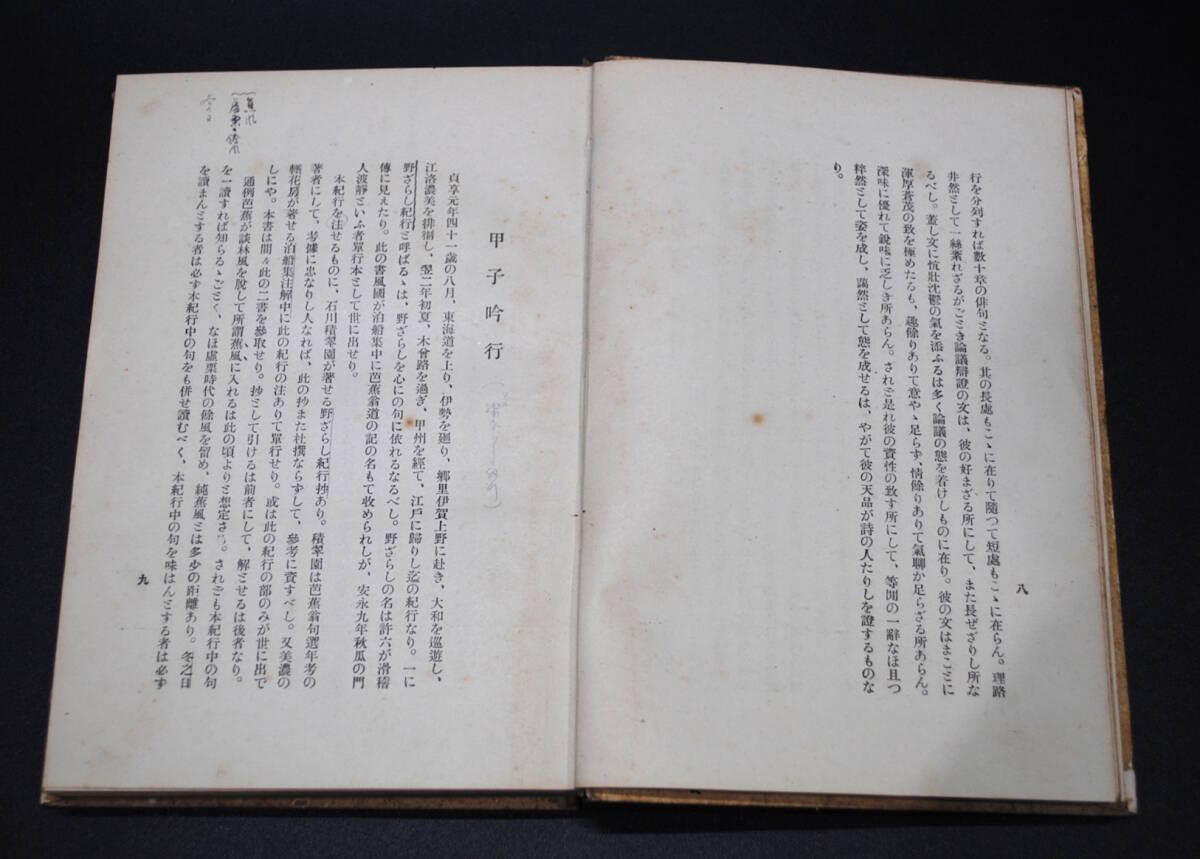 八
行を分列すれば數十章の俳句となる。其の長處もこゝに在りて隨つて短處もこゝに在らん。理路
井然として一絲紊れざるがごとき論議辯證の文は、彼の好まざる所にして、また長ぜざりし所な
るべし。蓋し文に忼壯沈鬱の氣を添ふるは多く論議の態を着けしものに在り。彼の文はまことに
渾厚蒼茂の致を極めたるも、趣餘りありて意やゝ足らず、情餘りありて氣聊か足らざる所あらん。
深味に優れて銳味に乏しき所あらん。されど是れ彼の資性の致す所にして、等閒の一辭なほ且つ
粹然として姿を成し、藹然として態を成せるは、やがて彼の天品が詩の人たりしを證するものな
り。
甲子吟行
貞享元年四十一歲の八月、東海道を上り、伊勢を廻り、鄕里伊賀上野に赴き、大和を巡遊し、
江洛濃美を徘徊し、翌二年初夏、木曾路を過ぎ、甲州を經て、江戶に歸りし迄の紀行なり。一に
野ざらし紀行と呼ばるゝは、野ざらしを心にの句に依れるなるべし。野ざらしの名は許六が滑稽
傳に見えたり。此の書風國が泊船集中に芭蕉翁道の記の名もて收められしが、安永九年秋瓜の門
人波靜といふ者單行本として世に出せり。
本紀行を注せるものに、石川積翠園が著せる野ざらし紀行抄あり。積翠園は芭蕉翁句選年考の
著者にして、考據に忠なりし人なれば、此の抄また杜撰ならずして、參考に資すべし。又美濃の
花房が著せる泊船集注解中に此の紀行の注ありて單行せり。或は此の紀行の部のみが世に出で
しにや。本書は間々此の二書を參取せり。抄として引けるは前者にして、解とせるは後者なり。
通例芭蕉が談林風を脫して所謂蕉風に入れるは此の頃よりと想定さる。されども本紀行中の句
を一讀すれば知らるゝごとく、なほ虛栗時代の餘風を留め、純蕉風とは多少の距離あり。冬之日
を讀まんとする者は必ず本紀行中の句をも併せ讀むべく、本紀行中の句を味はんとする者は必ず
九
蕉風